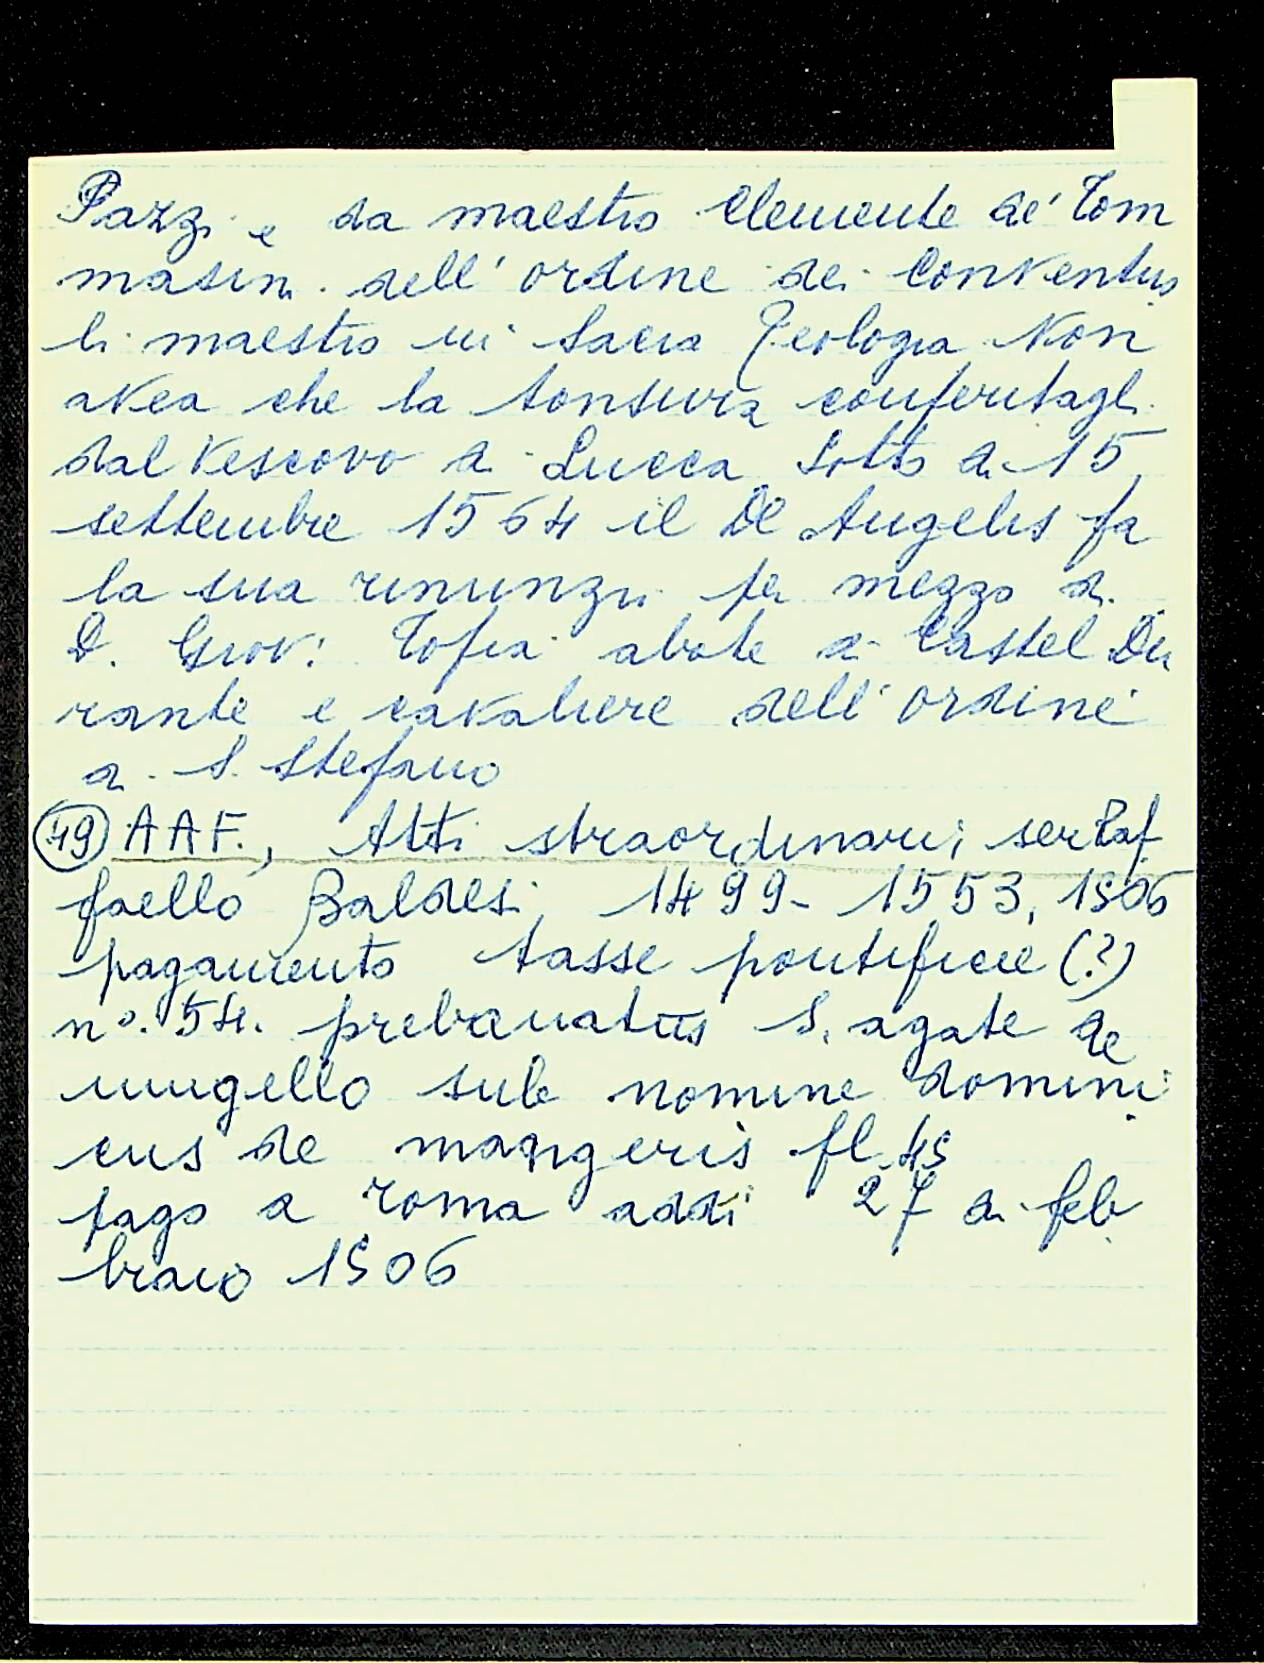 Pazzi e da maestro Clemente de' Tom
masini dell'ordine dei Conventua
li maestro in Sacra Teologia Non
avea che la tonsura conferitagli
dal Vescovo di Lucca sotto di 15
settembre 1564 il De Angelis fa
la sua rinunzia per mezzo di
D. Giov: Tofia abate di Castel Du
rante e cavaliere dell'ordine
di S. Stefano
49 AAF., Atti straordinari; ser Raf
faello Baldesi, 1499-1553, 1506
pagamento tasse pontificie (?)
n°. 54. prebenatus S. agate de
mugello sub nomine domini
cus de mangeris fl. 45
pago a roma addi 27 di feb
braio 1506